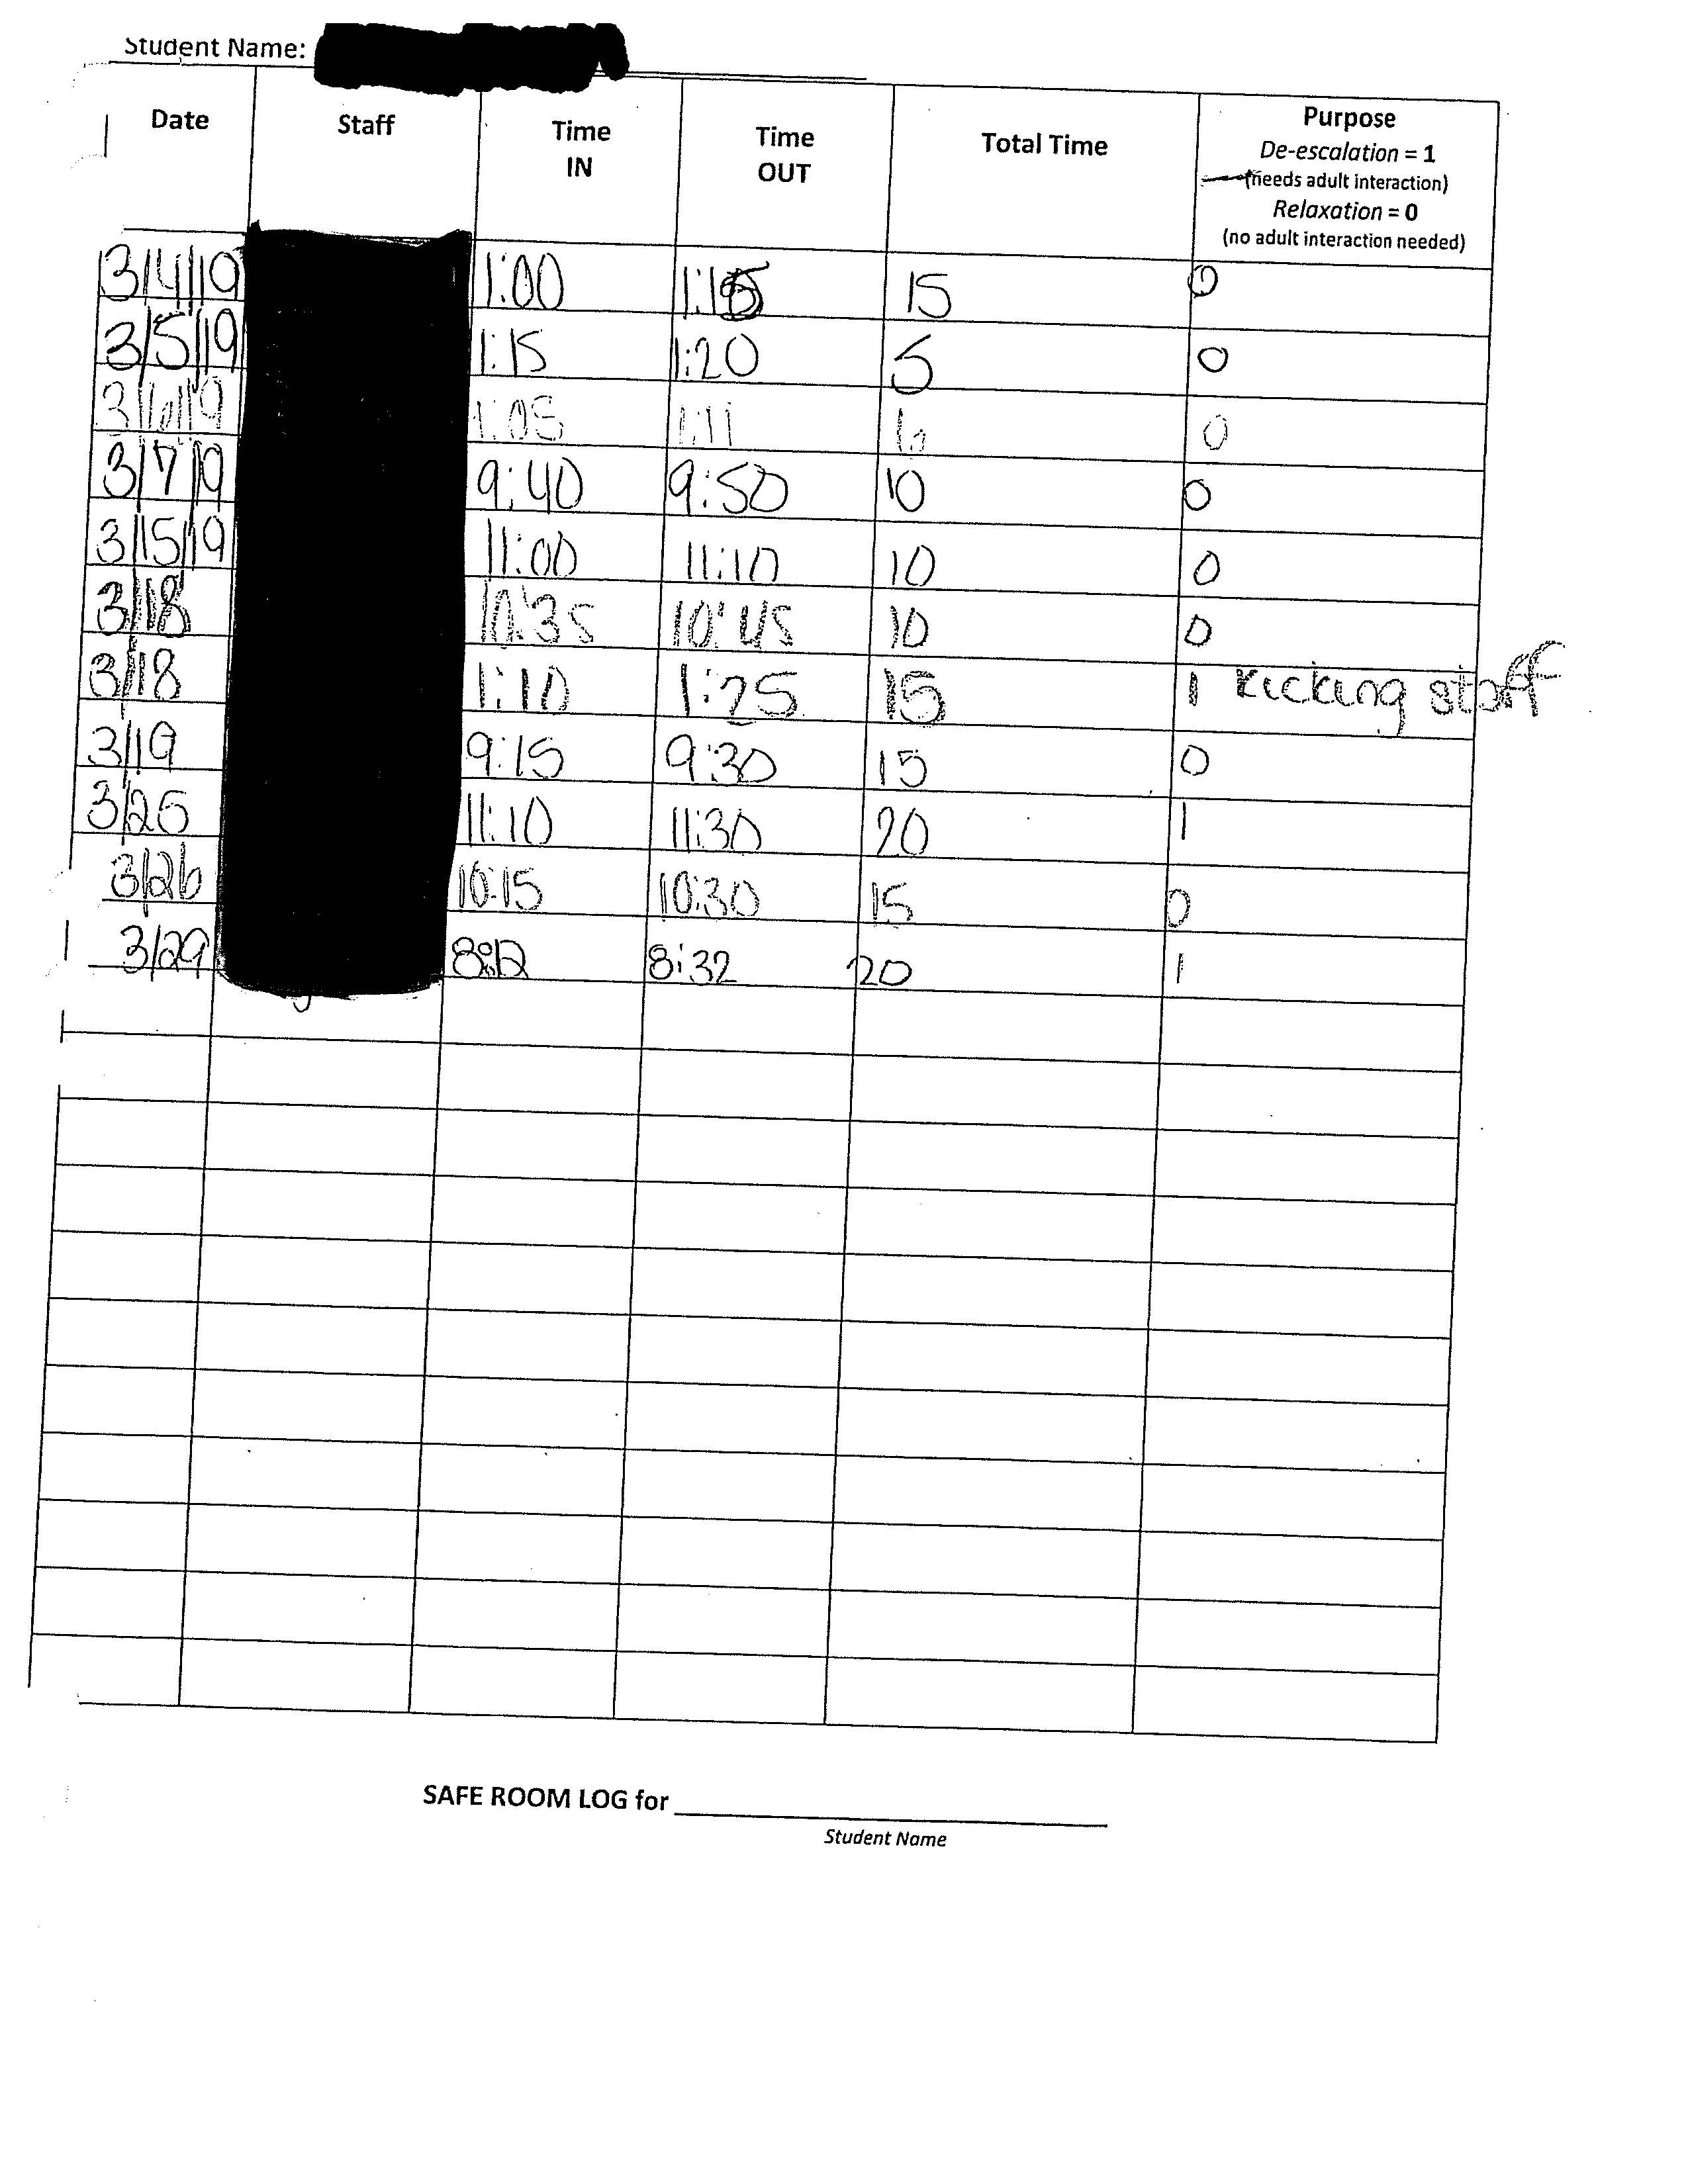 Student Name:
Date Staff Time IN Time OUT Total Time Purpose
De-escalation = 1
(needs adult interaction)
Relaxation = 0
(no adult interaction needed)
3/4/19 1:00 1:15 15 0
3/5/19 1:15 1:20 5 0
3/6/19 1:05 1:11 6 0
3/7/19 9:40 9:50 10 0
3/15/19 11:00 11:10 10 0
3/18 10:35 10:45 10 0
3/18 1:10 1:25 15 1 kicking staff
3/19 9:15 9:30 15 0
3/25 11:10 11:30 20 1
3/26 10:15 10:30 15 0
3/29 8:12 8:32 20 1
SAFE ROOM LOG for
Student Name